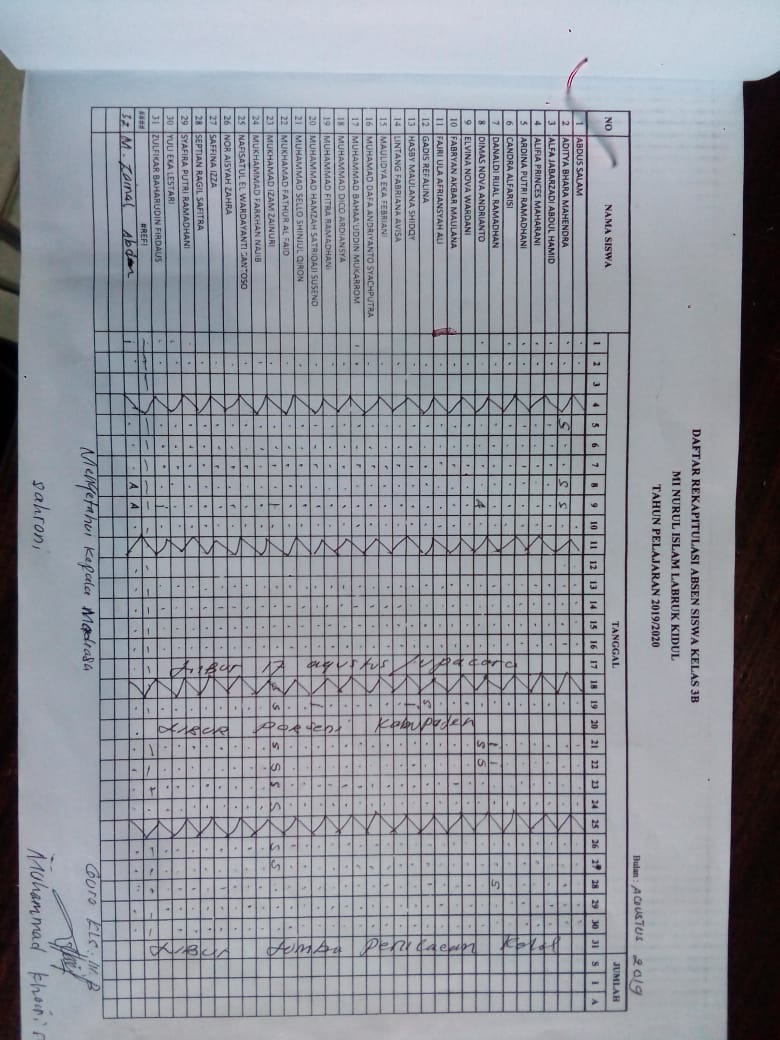 DAFTAR REKAPITULASI ABSEN SISWA KELAS 3B
MI NURUL ISLAM LABRUK KIDUL
TAHUN PELAJARAN 2019/2020
Bulan : AGUSTUS 2019
NO NAMA SISWA TANGGAL JUMLAH
1 2 3 4 5 6 7 8 9 10 11 12 13 14 15 16 17 18 19 20 21 22 23 24 25 26 27 28 29 30 31 S I A
1 ABDUS SALAM
2 ADITYA BHARA MAHENDRA S S S
3 ALFA JABARZADI ABDUL HAMID
4 ALIFIA PRINCES MAHARANI
5 ARDINA PUTRI RAMADHANI
6 CANDRA ALFARISI
7 DANALDI RIJAL RAMADHAN I I S
8 DIMAS NOVA ANDRIANTO A S S
9 ELVINA NOVA WARDANI
10 FABRYAN AKBAR MAULANA
11 FAJRI ULA AFRIANSYAH ALI
12 GADIS REFALINA S
13 HASBY MAULANA SHIDQY I
14 LINTANG FABRIANA AVISA
15 MAULIDYA EKA FEBRIANI
16 MUHAMAD DAFA ANDRIYANTO SYACHPUTRA
17 MUHAMMAD BAHAA'UDDIN MUKARROM
18 MUHAMMAD DICO ARDIANSYA
19 MUHAMMAD FITRA RAMADHANI
20 MUHAMMAD HAMZAH SATRIOAJI SUSENO I
21 MUHAMMAD SELLO SHINJUL QIRON
22 MUKHAMAD FATHUR AL FAID
23 MUKHAMAD IZAM ZAINURI I S S S S S S S
24 MUKHAMMAD FARKHAN NAJIB
25 NAFISATUL EL WARDAYANTI SANTOSO
26 NOR AISYAH ZAHRA
27 SAFFINA IZZA
28 SEPTIAN RAGIL SAFITRA
29 SYAFIRA PUTRI RAMADHANI
30 YULI EKA LESTARI
31 ZULFIKAR BAHARUDIN FIRDAUS I
#### #REF!
32 M. Zainal Abden A A
LIBUR 17 agustus / upacara
LIBUR porseni Kabupaden
LIBUR Lomba
Mengetahui Kepala Madrasa
Guru KLS. III B
sahroni
Muhammad